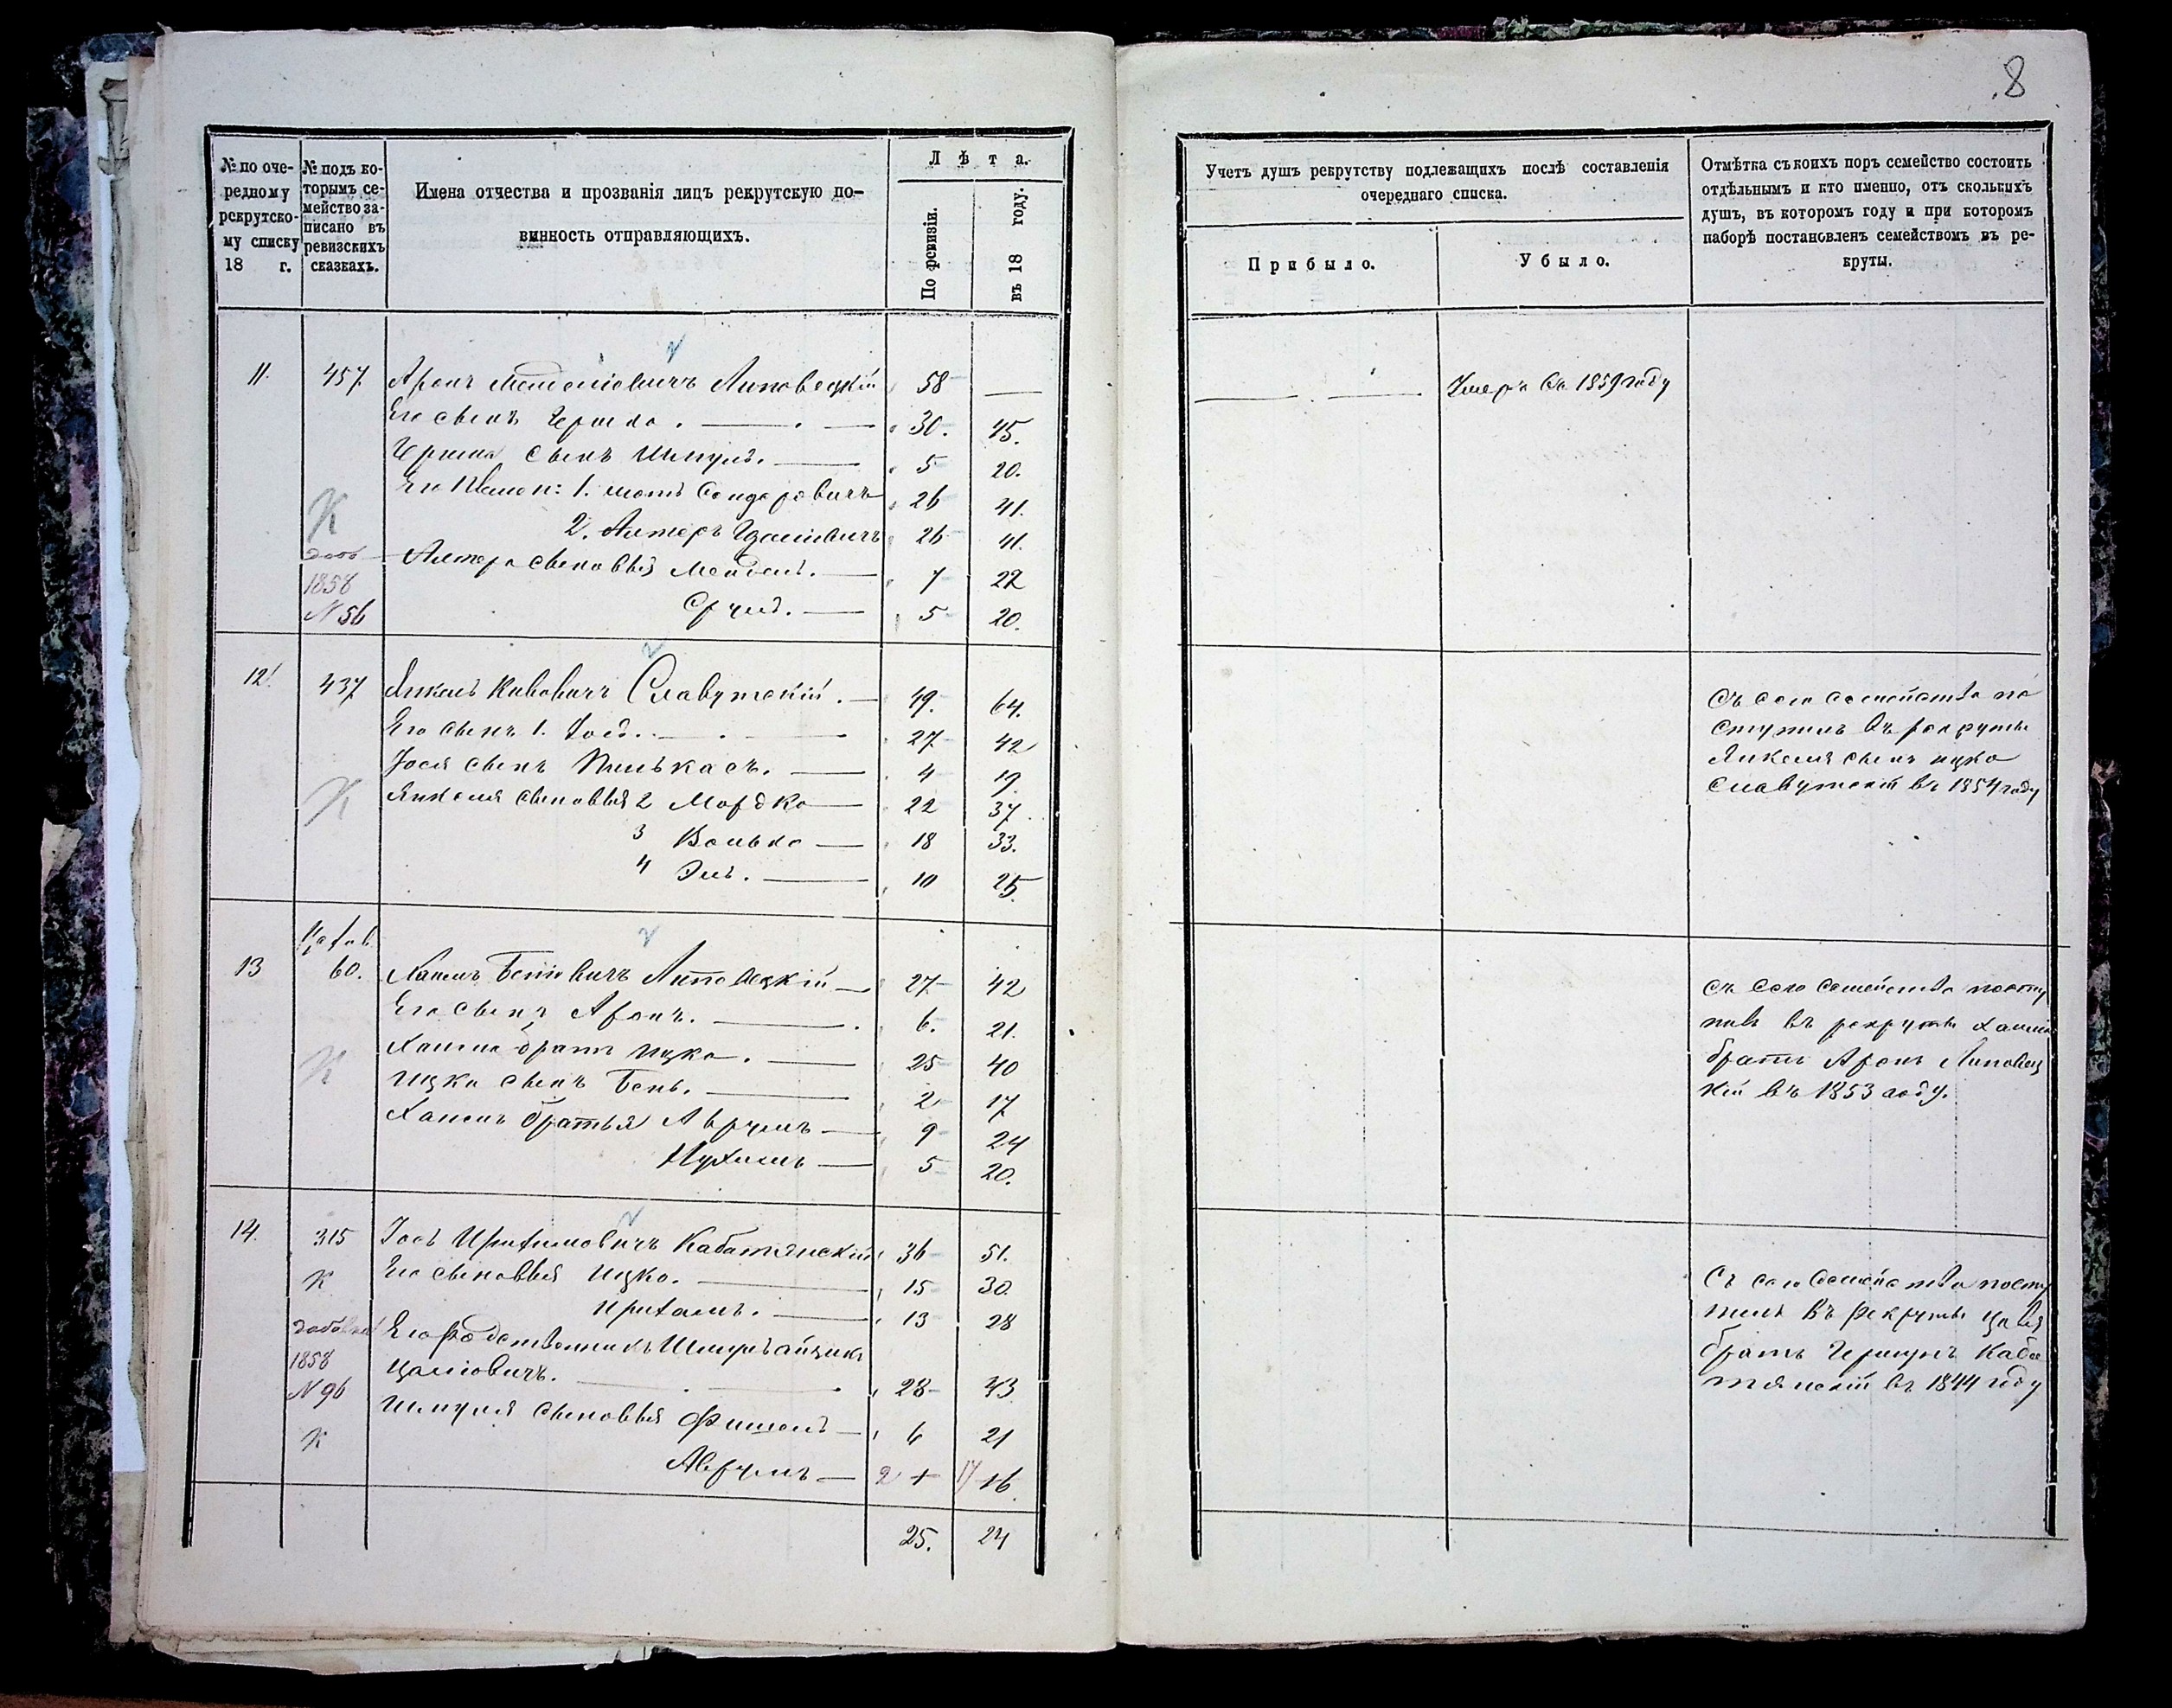 8
№ по оче-
редному
рекрутско-
му списку
18 г.
№ подъ ко-
торымъ се-
мейство за-
писано въ
ревизскихъ
сказкахъ.
Имена отчества и прозванія лицъ рекрутскую по-
винность отправляющихъ.
Лѣта.
По ревизіи.
въ 18 году.
Учетъ душъ рекрутству подлежащихъ послѣ составленія
очереднаго списка.
Прибыло.
Убыло.
Отмѣтка съ коихъ поръ семейство состоитъ
отдѣльнымъ и кто именно, отъ сколькихъ
душъ, въ которомъ году и при которомъ
наборѣ постановленъ семействомъ въ ре-
круты.
11. 457. Аронъ Липовецкій 58 —
Умеръ въ 1859 году
Его сынъ Гершко. 30. 45.
Гершка сынъ Шмуль. 5 20.
Его 1. Сендеровичъ 26 41.
К 2. Алтеръ 26 41.
Алтера сыновья Мендель. 7 22
1858
№ 56 Сруль. 5 20.
12. 437 Янкель Кивовичъ Славутскій. 49. 64.
Его сынъ 1. Іось. 27 42
Іося сынъ Пинькасъ. 4 19.
К Янкеля сыновья 2 Мордко 22 37.
3 Волько 18 33.
4 Эль. 10 25.
Съ сего семейства по
ступилъ въ рекруты
Янкеля сынъ Ицко
Славутскій въ 1854 году
13 60. Хаимъ Беніовичъ Липовецкій 27 42
Его сынъ Аронъ. 6. 21.
К Хаима братъ Ицко. 25 40
Ицка сынъ Бень. 2 17
Хаима братья Аврумъ 9 24
Нухимъ 5 20.
Съ сего семейства посту
пилъ въ рекруты Хаима
братъ Аронъ Липовец
кій въ 1853 году.
14. 315 Іось Кабатянскій 36 51.
К Его сыновья Ицко. 15 30.
13 28
Его родственникъ Шмуль Айзикъ
1858
№ 96 28 43
Шмуля сыновья Фишель 6 21
К Аврумъ 2 1 17 16.
25. 24
Съ сего семейства посту
пилъ въ рекруты
братъ Гершунъ Каба
тянскій въ 1844 году